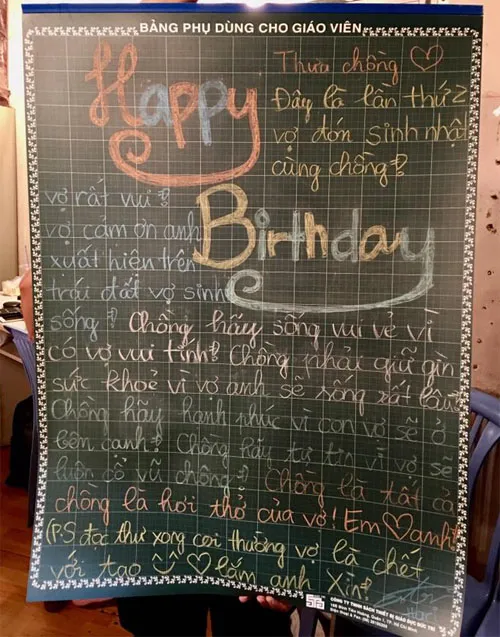 BẢNG PHỤ DÙNG CHO GIÁO VIÊN
Happy
Thưa chồng ♡
Đây là lần thứ 2
vợ đón sinh nhật
cùng chồng?
Birthday
vợ rất vui?
vợ cảm ơn anh
xuất hiện trên
trái đất vợ sinh
sống? Chồng hãy sống vui vẻ vì
có vợ vui tính? Chồng phải giữ gìn
sức khoẻ vì vợ anh sẽ sống rất lâu
Chồng hãy hạnh phúc vì con vợ sẽ ở
bên cạnh? Chồng hãy tự tin vì vợ sẽ
luôn cổ vũ chồng? Chồng là tất cả
chồng là hơi thở của vợ! Em ♡ anh!
(P.S đọc thư xong coi thường vợ là chết
với tao ♡ lắm anh Xìn?
CÔNG TY TNHH SÁCH THIẾT BỊ GIÁO DỤC ĐỨC TRÍ